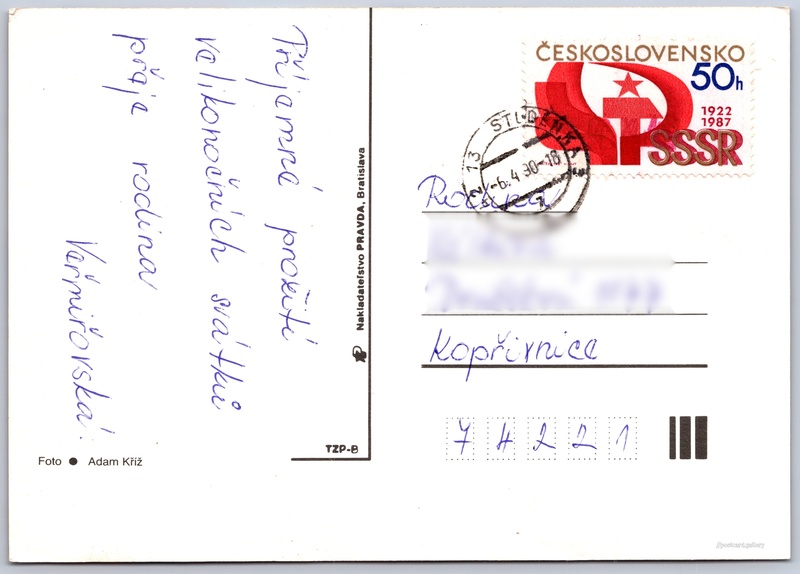 Příjemné prožití
velikonočních svátků
přeje rodina
Veřmiřovská.
Foto ● Adam Kříž
Nakladateľstvo PRAVDA, Bratislava
TZP-B
ČESKOSLOVENSKO
50h
1922
1987
SSSR
STUDÉNKA
-6.4.90-18
Rodina
Kopřivnice
74221